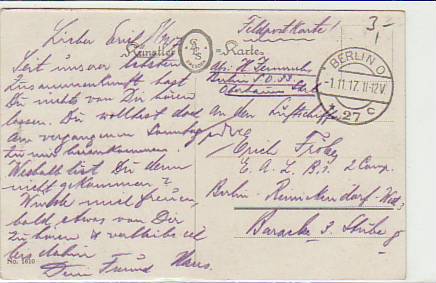 Feldpostkarte!
3,-
Künstler Karte
BERLIN O
-1.11.17.11-12V
* 27 c
Abs: H.
Berlin S.O. 33
Oberbaum Str. 1
An den Luftschiffer
Erich
E. A. L. B. 1 2 Comp.
Berlin-Reinickendorf-West
Baracke 3. Stube 9
Lieber Erich!
Seit unserer letzten
Zusammenkunft hast
Du nichts von Dir hören
lassen. Du wolltest doch
am vergangenen Sonntag
zu mir herankommen.
Weshalb bist Du denn
nicht gekommen?
Würde mich freuen,
bald etwas von Dir
zu hören & verbleibe
bis dahin
Dein Freund Hans.
No. 1610